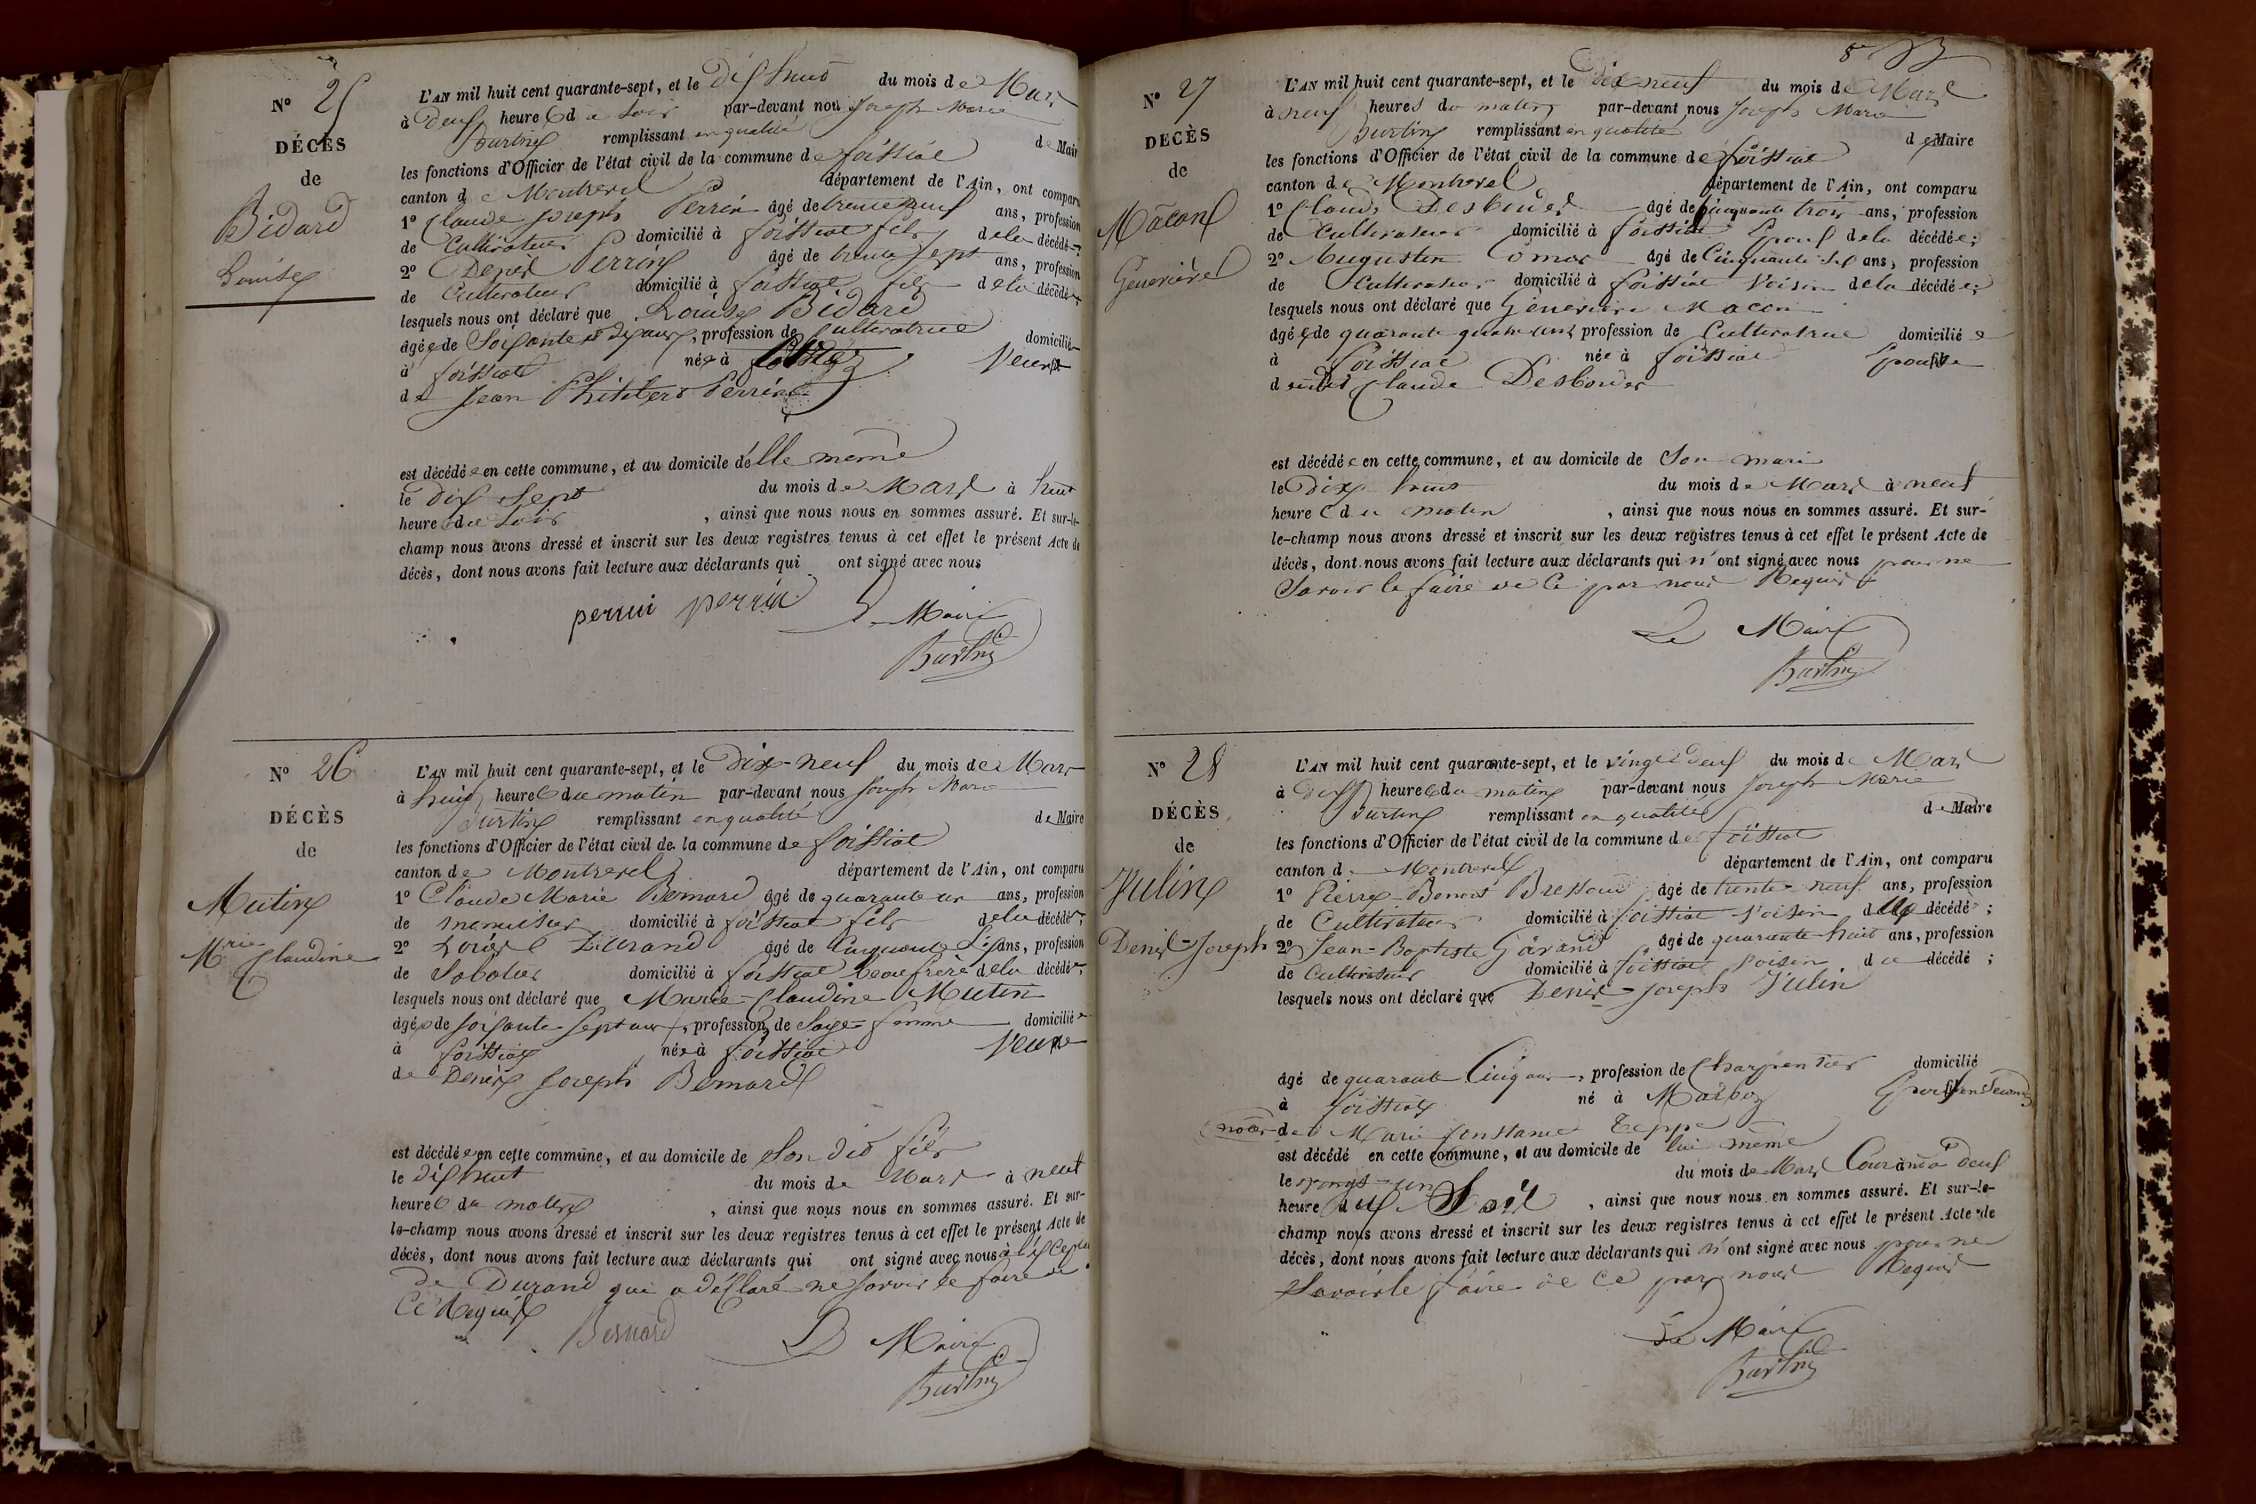 N° 25
DÉCÈS
de
Bidard
Louise
L'AN mil huit cent quarante-sept, et le dix huit du mois de Mars
à deux heures du soir par-devant nous Joseph Marie
Burtin remplissant en qualité de Maire
les fonctions d'Officier de l'état civil de la commune de foissiat
canton de Montrevel département de l'Ain, ont comparu
1° Claude Joseph Perrin âgé de trente neuf ans, profession
de Cultivateur domicilié à foissiat fils de la décédée;
2° Denis Perrin âgé de trente sept ans, profession
de Cultivateur domicilié à foissiat fils de la décédée
lesquels nous ont déclaré que Louise Bidard
âgée de Soixante et dix ans, profession de Cultivatrice domiciliée
à foissiat née à Veuve
de Jean Philibert Perrin
est décédée en cette commune, et au domicile d'elle même
le dix Sept du mois de Mars à huit
heures du Soir, ainsi que nous nous en sommes assuré. Et sur-le-
champ nous avons dressé et inscrit sur les deux registres tenus à cet effet le présent Acte de
décès, dont nous avons fait lecture aux déclarants qui ont signé avec nous
perrin perrin Le Maire
Burtin
N° 26
DÉCÈS
de
Mutin
Mrie Claudine
L'AN mil huit cent quarante-sept, et le dix-neuf du mois de Mars
à huit heures du matin par-devant nous Joseph Marie
Burtin remplissant en qualité de Maire
les fonctions d'Officier de l'état civil de la commune de foissiat
canton de Montrevel département de l'Ain, ont comparu
1° Claude Marie Bernard âgé de quarante un ans, profession
de menuisier domicilié à foissiat fils de la décédée;
2° Louis Durand âgé de Cinquante Six ans, profession
de Sabotier domicilié à foissiat beau frère de la décédée;
lesquels nous ont déclaré que Marie-Claudine Mutin
âgée de soixante Sept ans, profession de Sage-femme domiciliée
à foissiat née à foissiat Veuve
de Denis Joseph Bernard
est décédée en cette commune, et au domicile de Son dit fils
le dix huit du mois de Mars à neuf
heures du matin, ainsi que nous nous en sommes assuré. Et sur-
le-champ nous avons dressé et inscrit sur les deux registres tenus à cet effet le présent Acte de
décès, dont nous avons fait lecture aux déclarants qui ont signé avec nous à l'exception
de Durand qui a déclaré ne savoir le faire de
Ce Requis
Bernard Le Maire
Burtin
N° 27
DÉCÈS
de
Mâcon
Geneviève
L'AN mil huit cent quarante-sept, et le dix neuf du mois de Mars
à neuf heures du matin par-devant nous Joseph Marie
Burtin remplissant en qualité de Maire
les fonctions d'Officier de l'état civil de la commune de foissiat
canton de Montrevel département de l'Ain, ont comparu
1° Claude Desbordes âgé de cinquante trois ans, profession
de Cultivateur domicilié à foissiat Epoux de la décédée;
2° Augustin Comas âgé de Cinquante Six ans, profession
de Cultivateur domicilié à foissiat Voisin de la décédée;
lesquels nous ont déclaré que Geneviève Macon
âgée de quarante ans, profession de Cultivatrice domiciliée
à foissiat née à foissiat Epouse
dudit Claude Desbordes
est décédée en cette commune, et au domicile de Son mari
le dix huit du mois de Mars à neuf
heures du matin, ainsi que nous nous en sommes assuré. Et sur-
le-champ nous avons dressé et inscrit sur les deux registres tenus à cet effet le présent Acte de
décès, dont nous avons fait lecture aux déclarants qui n'ont signé avec nous pour ne
Savoir le faire de Ce par nous Requis
Le Maire
Burtin
N° 28
DÉCÈS
de
Julin
Denis-Joseph
L'AN mil huit cent quarante-sept, et le vingt deux du mois de Mars
à dix heures du matin par-devant nous Joseph Marie
Burtin remplissant en qualité de Maire
les fonctions d'Officier de l'état civil de la commune de foissiat
canton de Montrevel département de l'Ain, ont comparu
1° Pierre-Benoit Bressoud âgé de trente-neuf ans, profession
de Cultivateur domicilié à foissiat Voisin du décédé;
2° Jean-Baptiste Gárand âgé de quarante-huit ans, profession
de Cultivateur domicilié à foissiat Voisin du décédé;
lesquels nous ont déclaré que Denis-Joseph Julin
âgé de quarante Cinq ans, profession de Charpentier domicilié
à foissiat né à Marboz Epoux en Secondes
noces de Marie Constance Teppe
est décédé en cette commune, et au domicile de lui même
le vingt-un du mois de Mars Courant à deux
heures du Soir, ainsi que nous nous en sommes assuré. Et sur-le-
champ nous avons dressé et inscrit sur les deux registres tenus à cet effet le présent Acte de
décès, dont nous avons fait lecture aux déclarants qui n'ont signé avec nous pour ne
Savoir le faire de Ce par nous Requis
Le Maire
Burtin